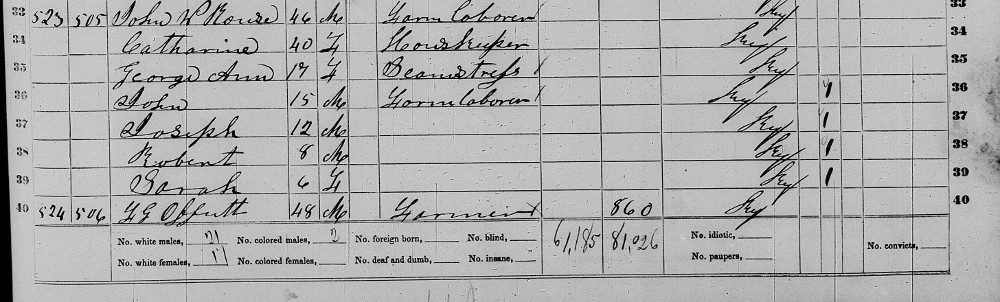 33 523 505 John W Rouse 46 M Farm laborer Ky 33
34 Catharine 40 F Houskeeper Ky 34
35 George Ann 17 F Seamstress Ky 35
36 John 15 M Farm laborer Ky 1 36
37 Joseph 12 M Ky 1 37
38 Robert 8 M Ky 1 38
39 Sarah 6 F Ky 1 39
40 524 506 Offutt 48 M Farmer 860 Ky 40
No. white males, 21 No. colored males, 2 No. foreign born, No. blind, 61,185 81,926 No. idiotic,
No. white females, 17 No. colored females, No. deaf and dumb, No. insane, No. paupers, No. convicts,